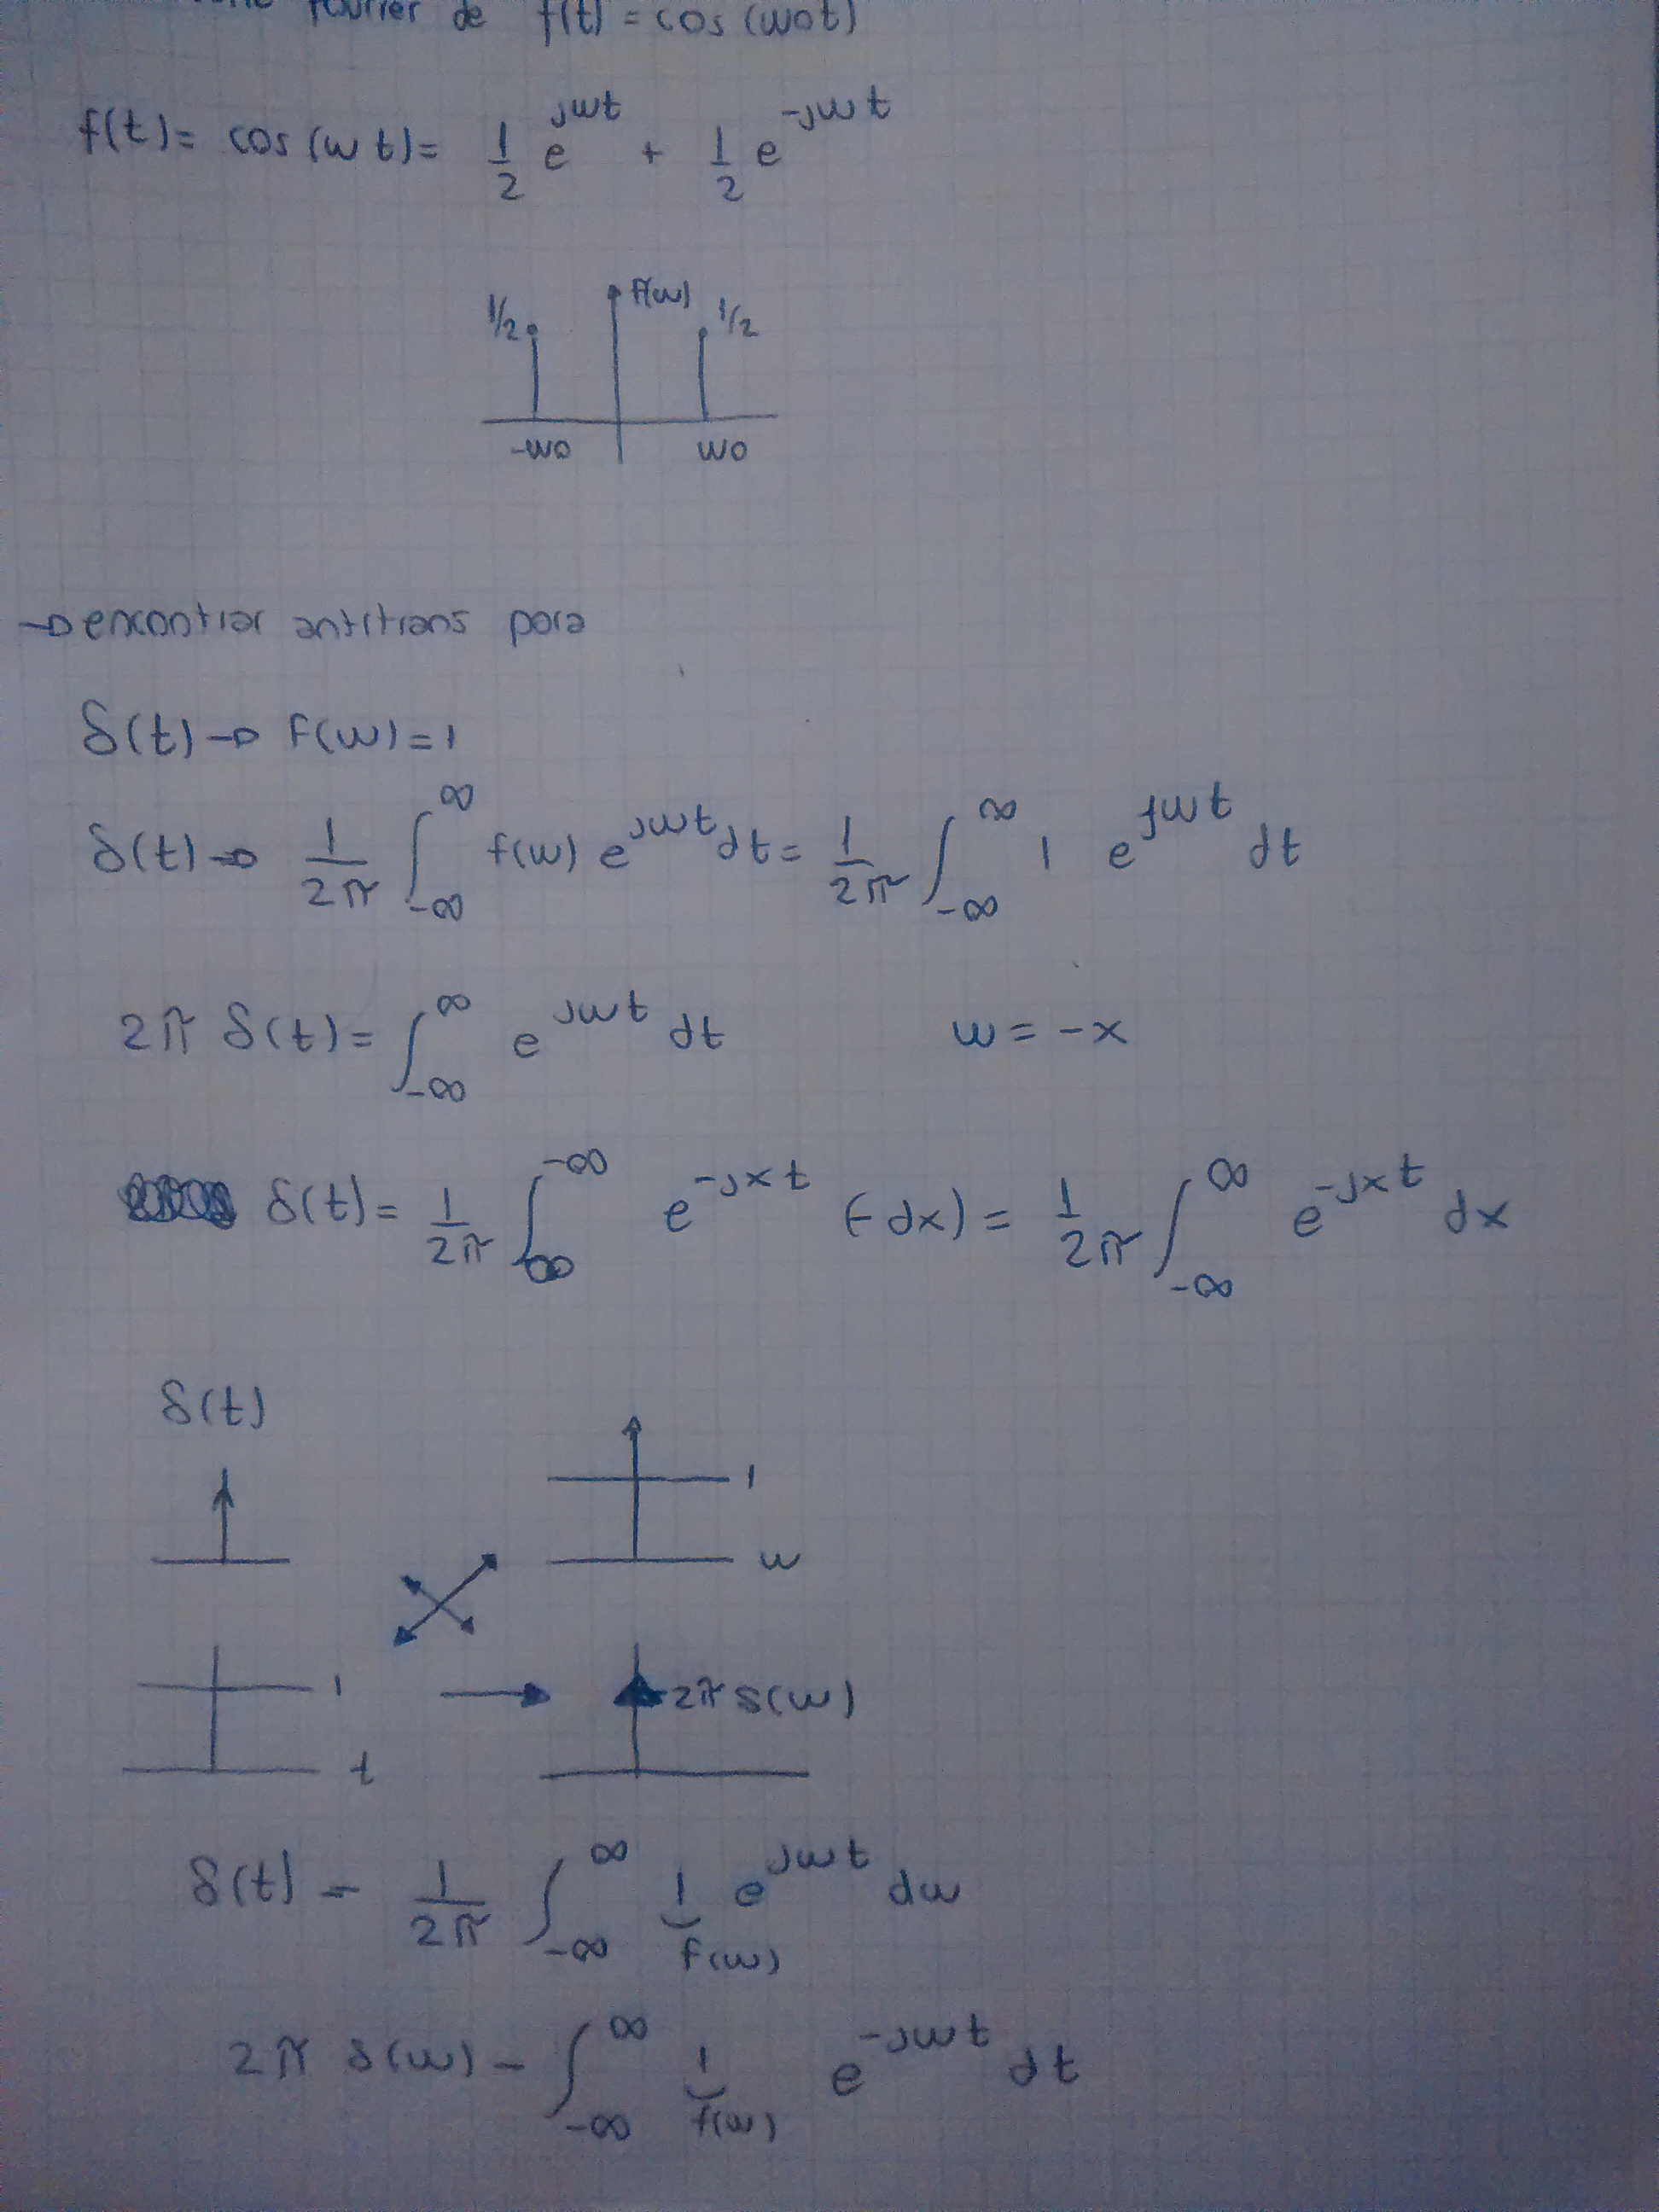 fourier de f(t) = cos (wot)
f(t) = cos (wt) = 1/2 e^{jwt} + 1/2 e^{-jwt}
f(w)
1/2 1/2
-wo wo
→ encontrar antitrans para
δ(t) → F(w) = 1
δ(t) → 1/2π ∫_{-∞}^{∞} f(w) e^{jwt} dt = 1/2π ∫_{-∞}^{∞} 1 e^{jwt} dt
2π δ(t) = ∫_{-∞}^{∞} e^{jwt} dt w = -x
δ(t) = 1/2π ∫_{∞}^{-∞} e^{-jxt} (-dx) = 1/2π ∫_{-∞}^{∞} e^{-jxt} dx
δ(t)
1
w
1 → 2π δ(w)
t
δ(t) - 1/2π ∫_{-∞}^{∞} 1 e^{jwt} dw
F(w)
2π δ(w) - ∫_{-∞}^{∞} 1 e^{-jwt} dt
f(w)